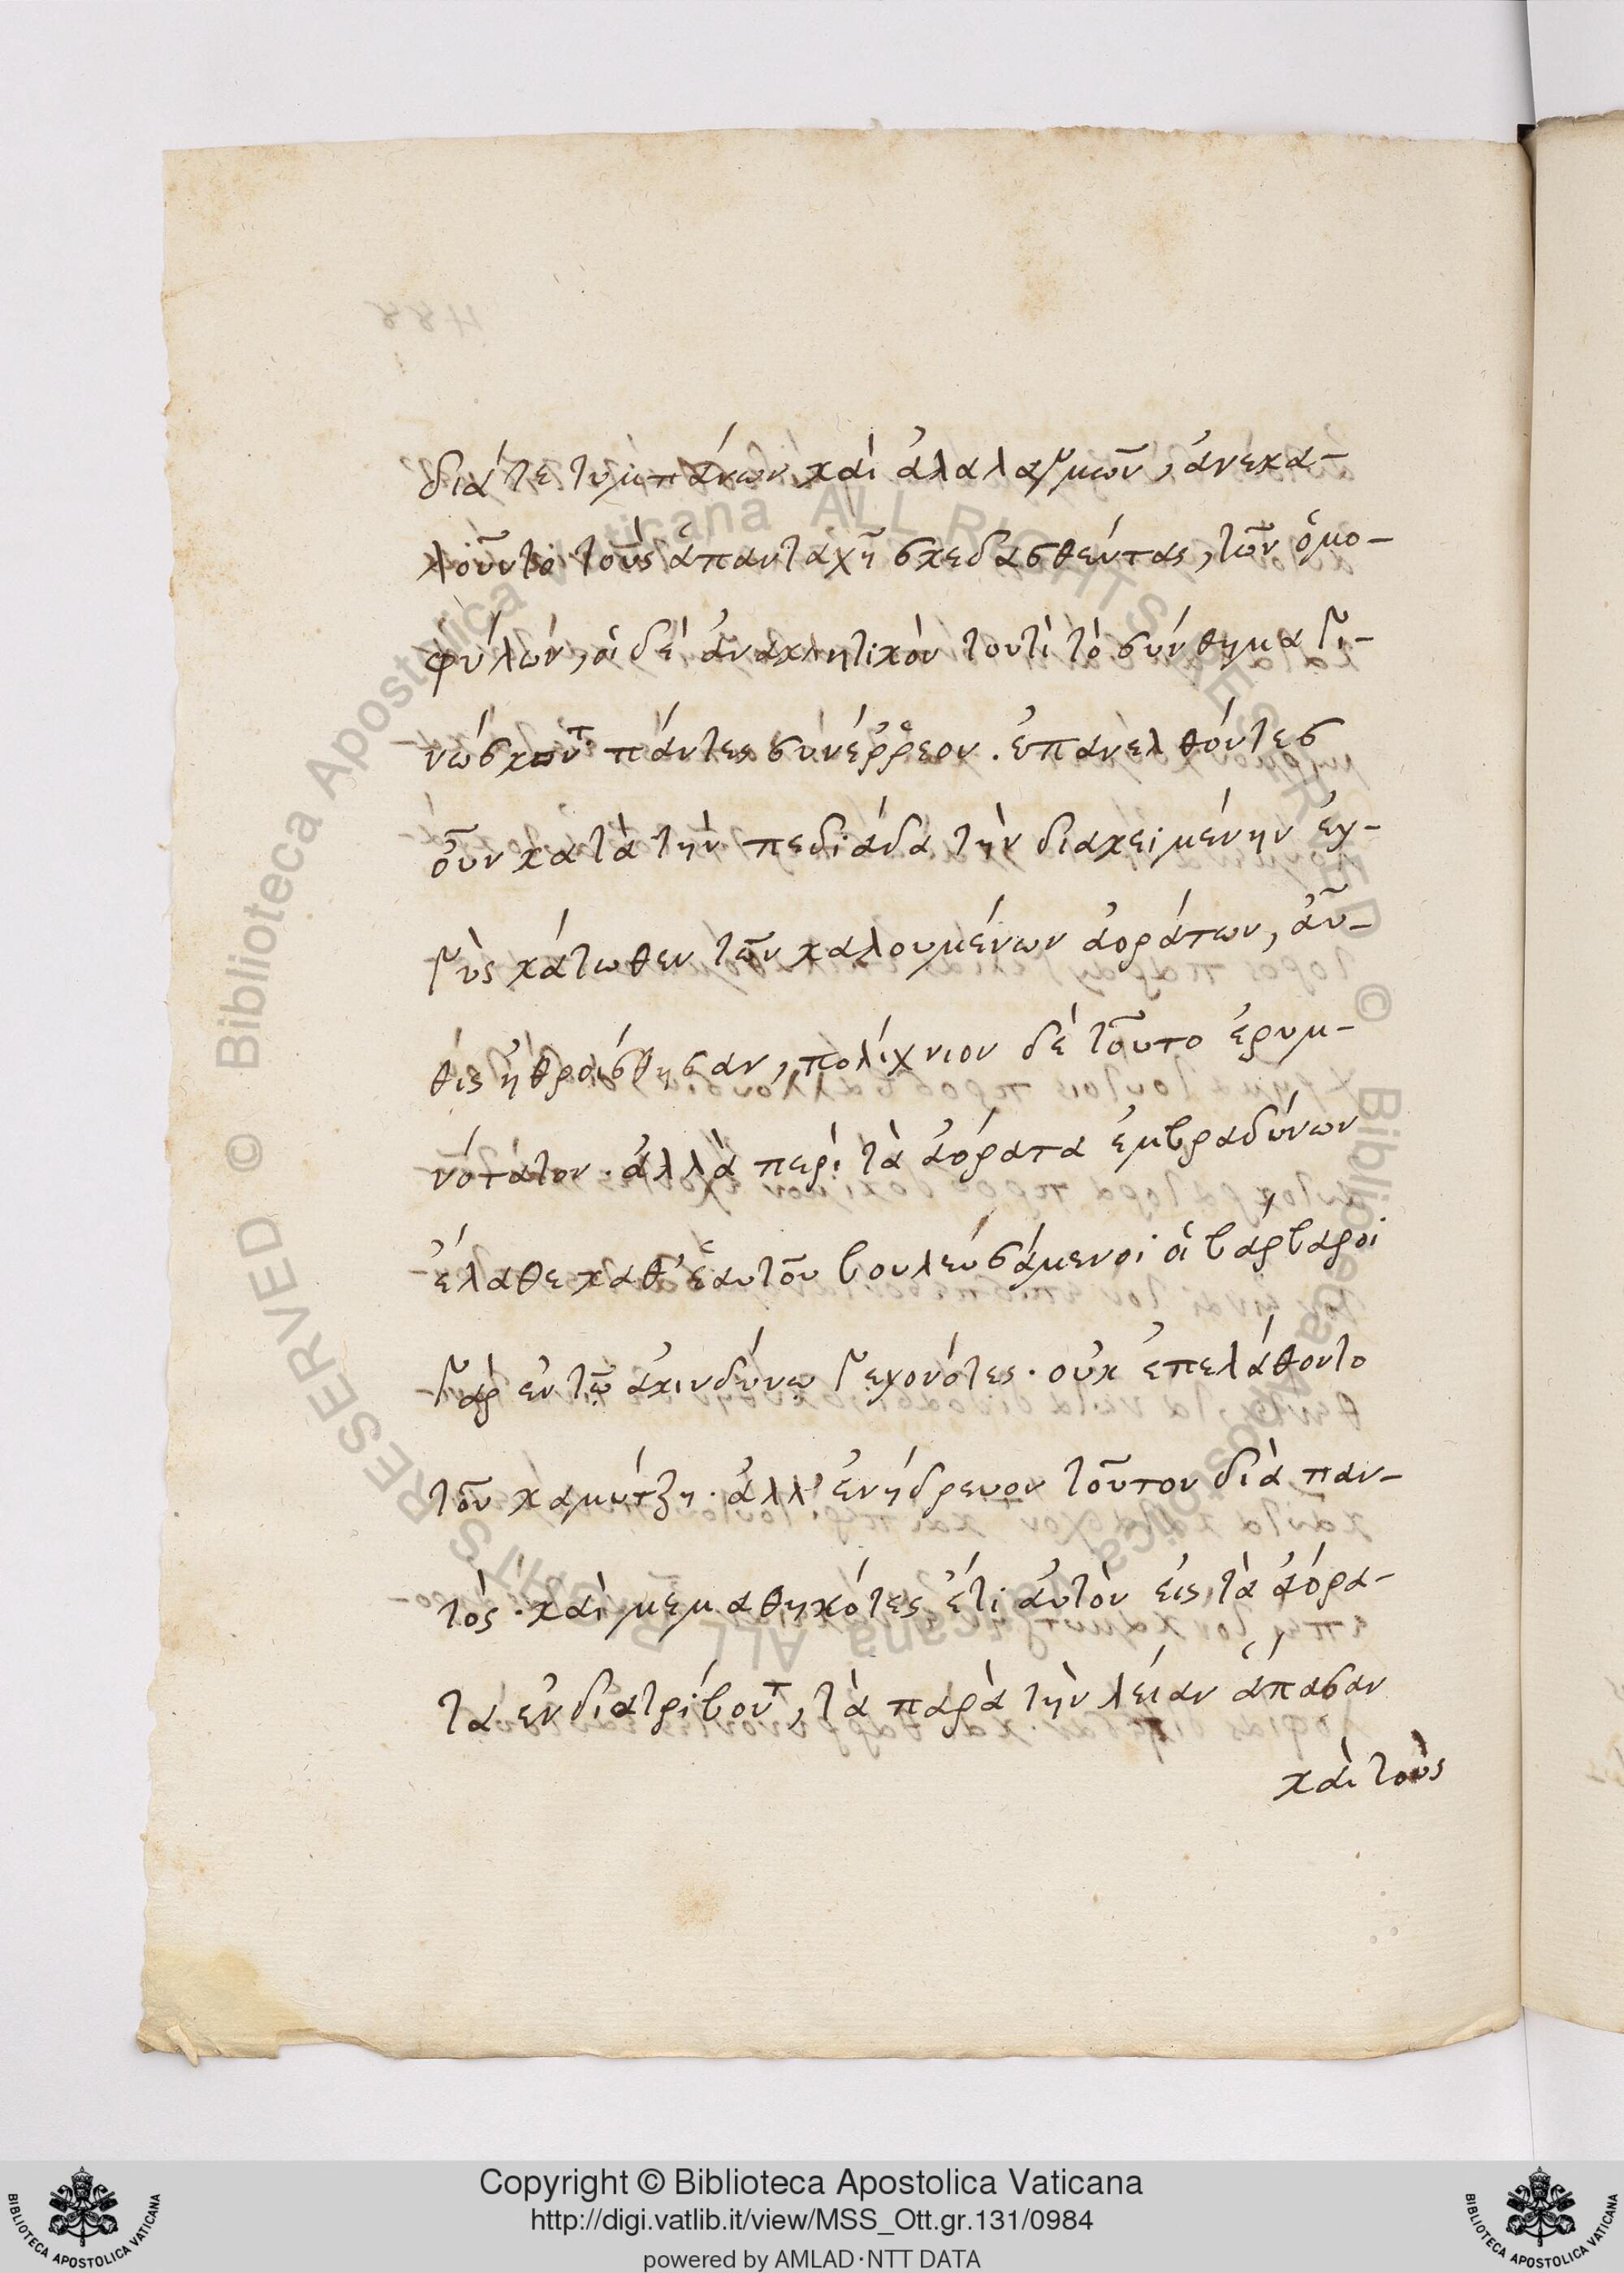 διά τε τυμπάνων καὶ ἀλαλαγμῶν, ἀνεκα-
λοῦντο τοὺς ἀπανταχῆ σκεδασθέντας, τῶν ὁμο-
φύλων, οἱ δὲ ἀνακλητικὸν τουτὶ τὸ σύνθημα γι-
νώσκοντ πάντες συνέρρεον. ἐπανελθόντες
οὖν κατὰ τὴν πεδιάδα τὴν διακειμένην ἐγ-
γὺς κάτωθεν τῶν καλουμένων ἀοράτων, αὖ-
θις ἠθροίσθησαν, πολίχνιον δὲ τοῦτο ἐρυμ-
νότατον. ἀλλὰ περὶ τὰ ἀόρατα ἐμβραδύνων
ἔλαθε καθ' ἑαυτοῦ βουλευσάμενοι οἱ βάρβαροι
γὰρ ἐν τῷ ἀκινδύνῳ γεγονότες. οὐκ ἐπελάθοντο
τοῦ καμύτζη. ἀλλ' ἐνήδρευον τοῦτον διὰ παν-
τὸς. καὶ μεμαθηκότες ἔτι αὐτὸν εἰς τὰ ἀόρα-
τα ἐνδιατρίβοντ, τὰ παρὰ τὴν λείαν ἅπασαν
καὶ τοὺς
488
© Biblioteca Apostolica Vaticana ALL RIGHTS RESERVED © Biblioteca Apostolica Vaticana ALL RIGHTS RESERVED
Copyright © Biblioteca Apostolica Vaticana
http://digi.vatlib.it/view/MSS_Ott.gr.131/0984
powered by AMLAD·NTT DATA
BIBLIOTECA APOSTOLICA VATICANA
BIBLIOTECA APOSTOLICA VATICANA